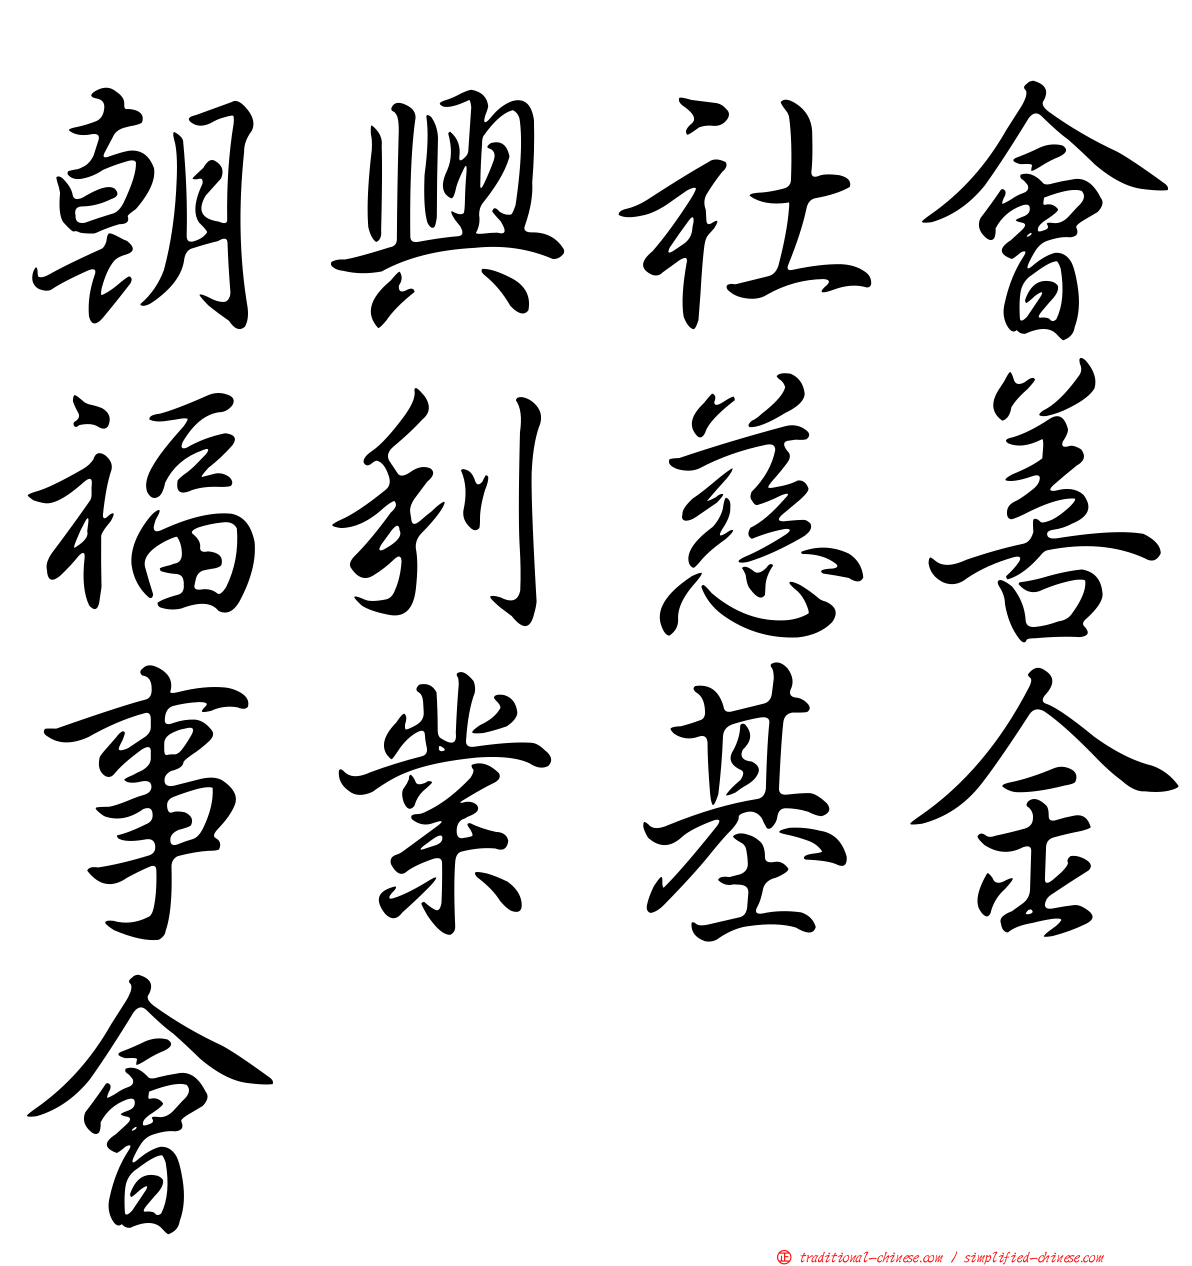 朝興社會
福利慈善
事業基金
會
正 traditional-chinese.com / simplified-chinese.com